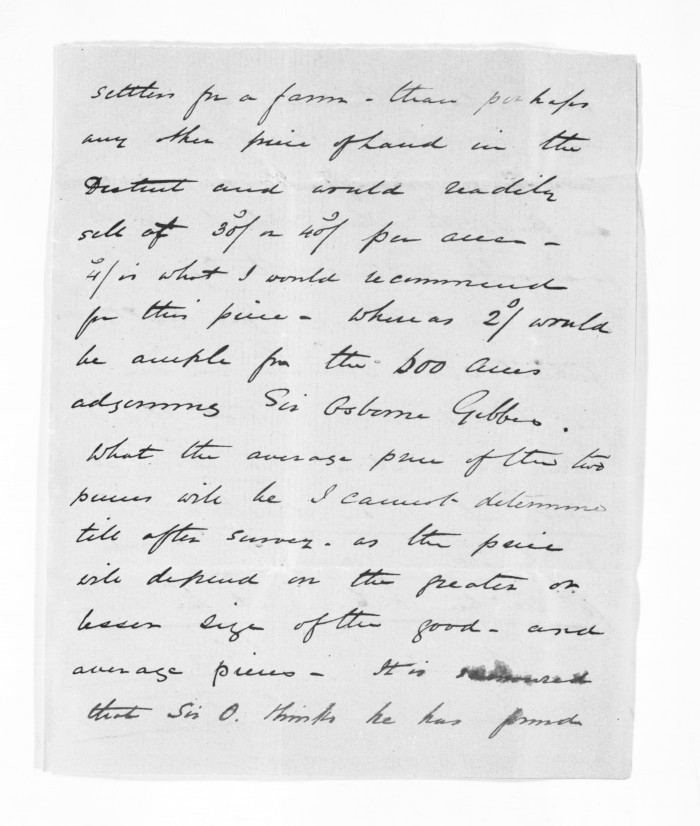 settlers for a farm - than perhaps
any other piece of land in the
District and would readily
sell at 30/ or 40/ per acre -
4/ is what I would recommend
for this piece - whereas 2/ would
be ample for the 600 acres
adjoining Sir Osborne Gibbes.
What the average price of the two
pieces will be I cannot determine
till after survey - as the price
will depend on the greater or
lesser size of the good - and
average pieces - It is rumoured
that Sir O. thinks he has found